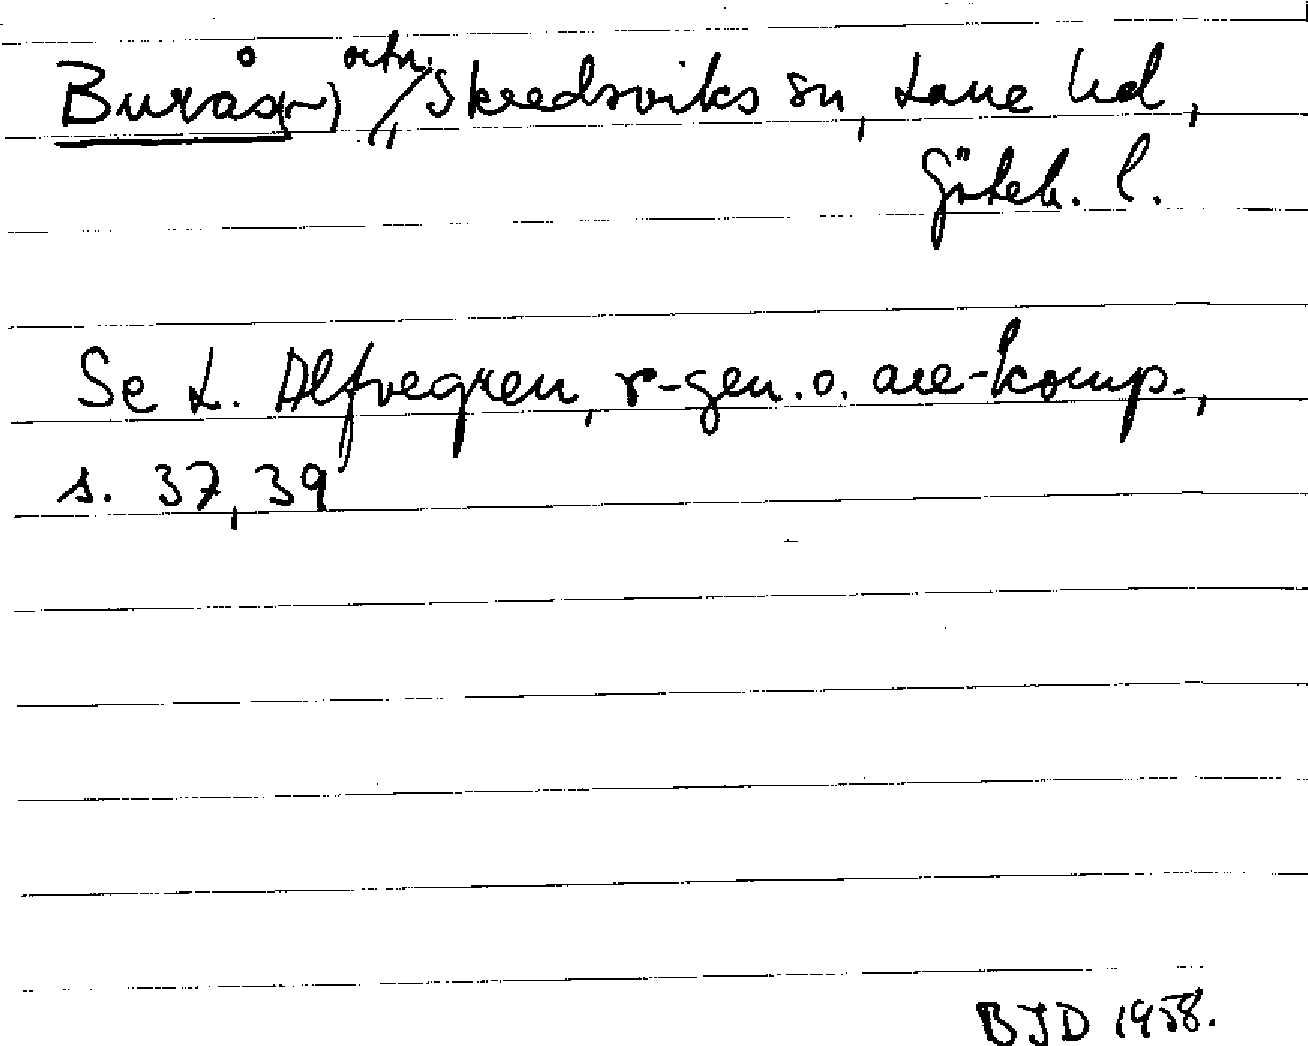 Burås(~) ortn., Skredsviks sn, Lane hd,
Göteb. l.
Se L. Alfvegren, r-gen. o. are-komp.,
s. 37, 39
BJD 1958.